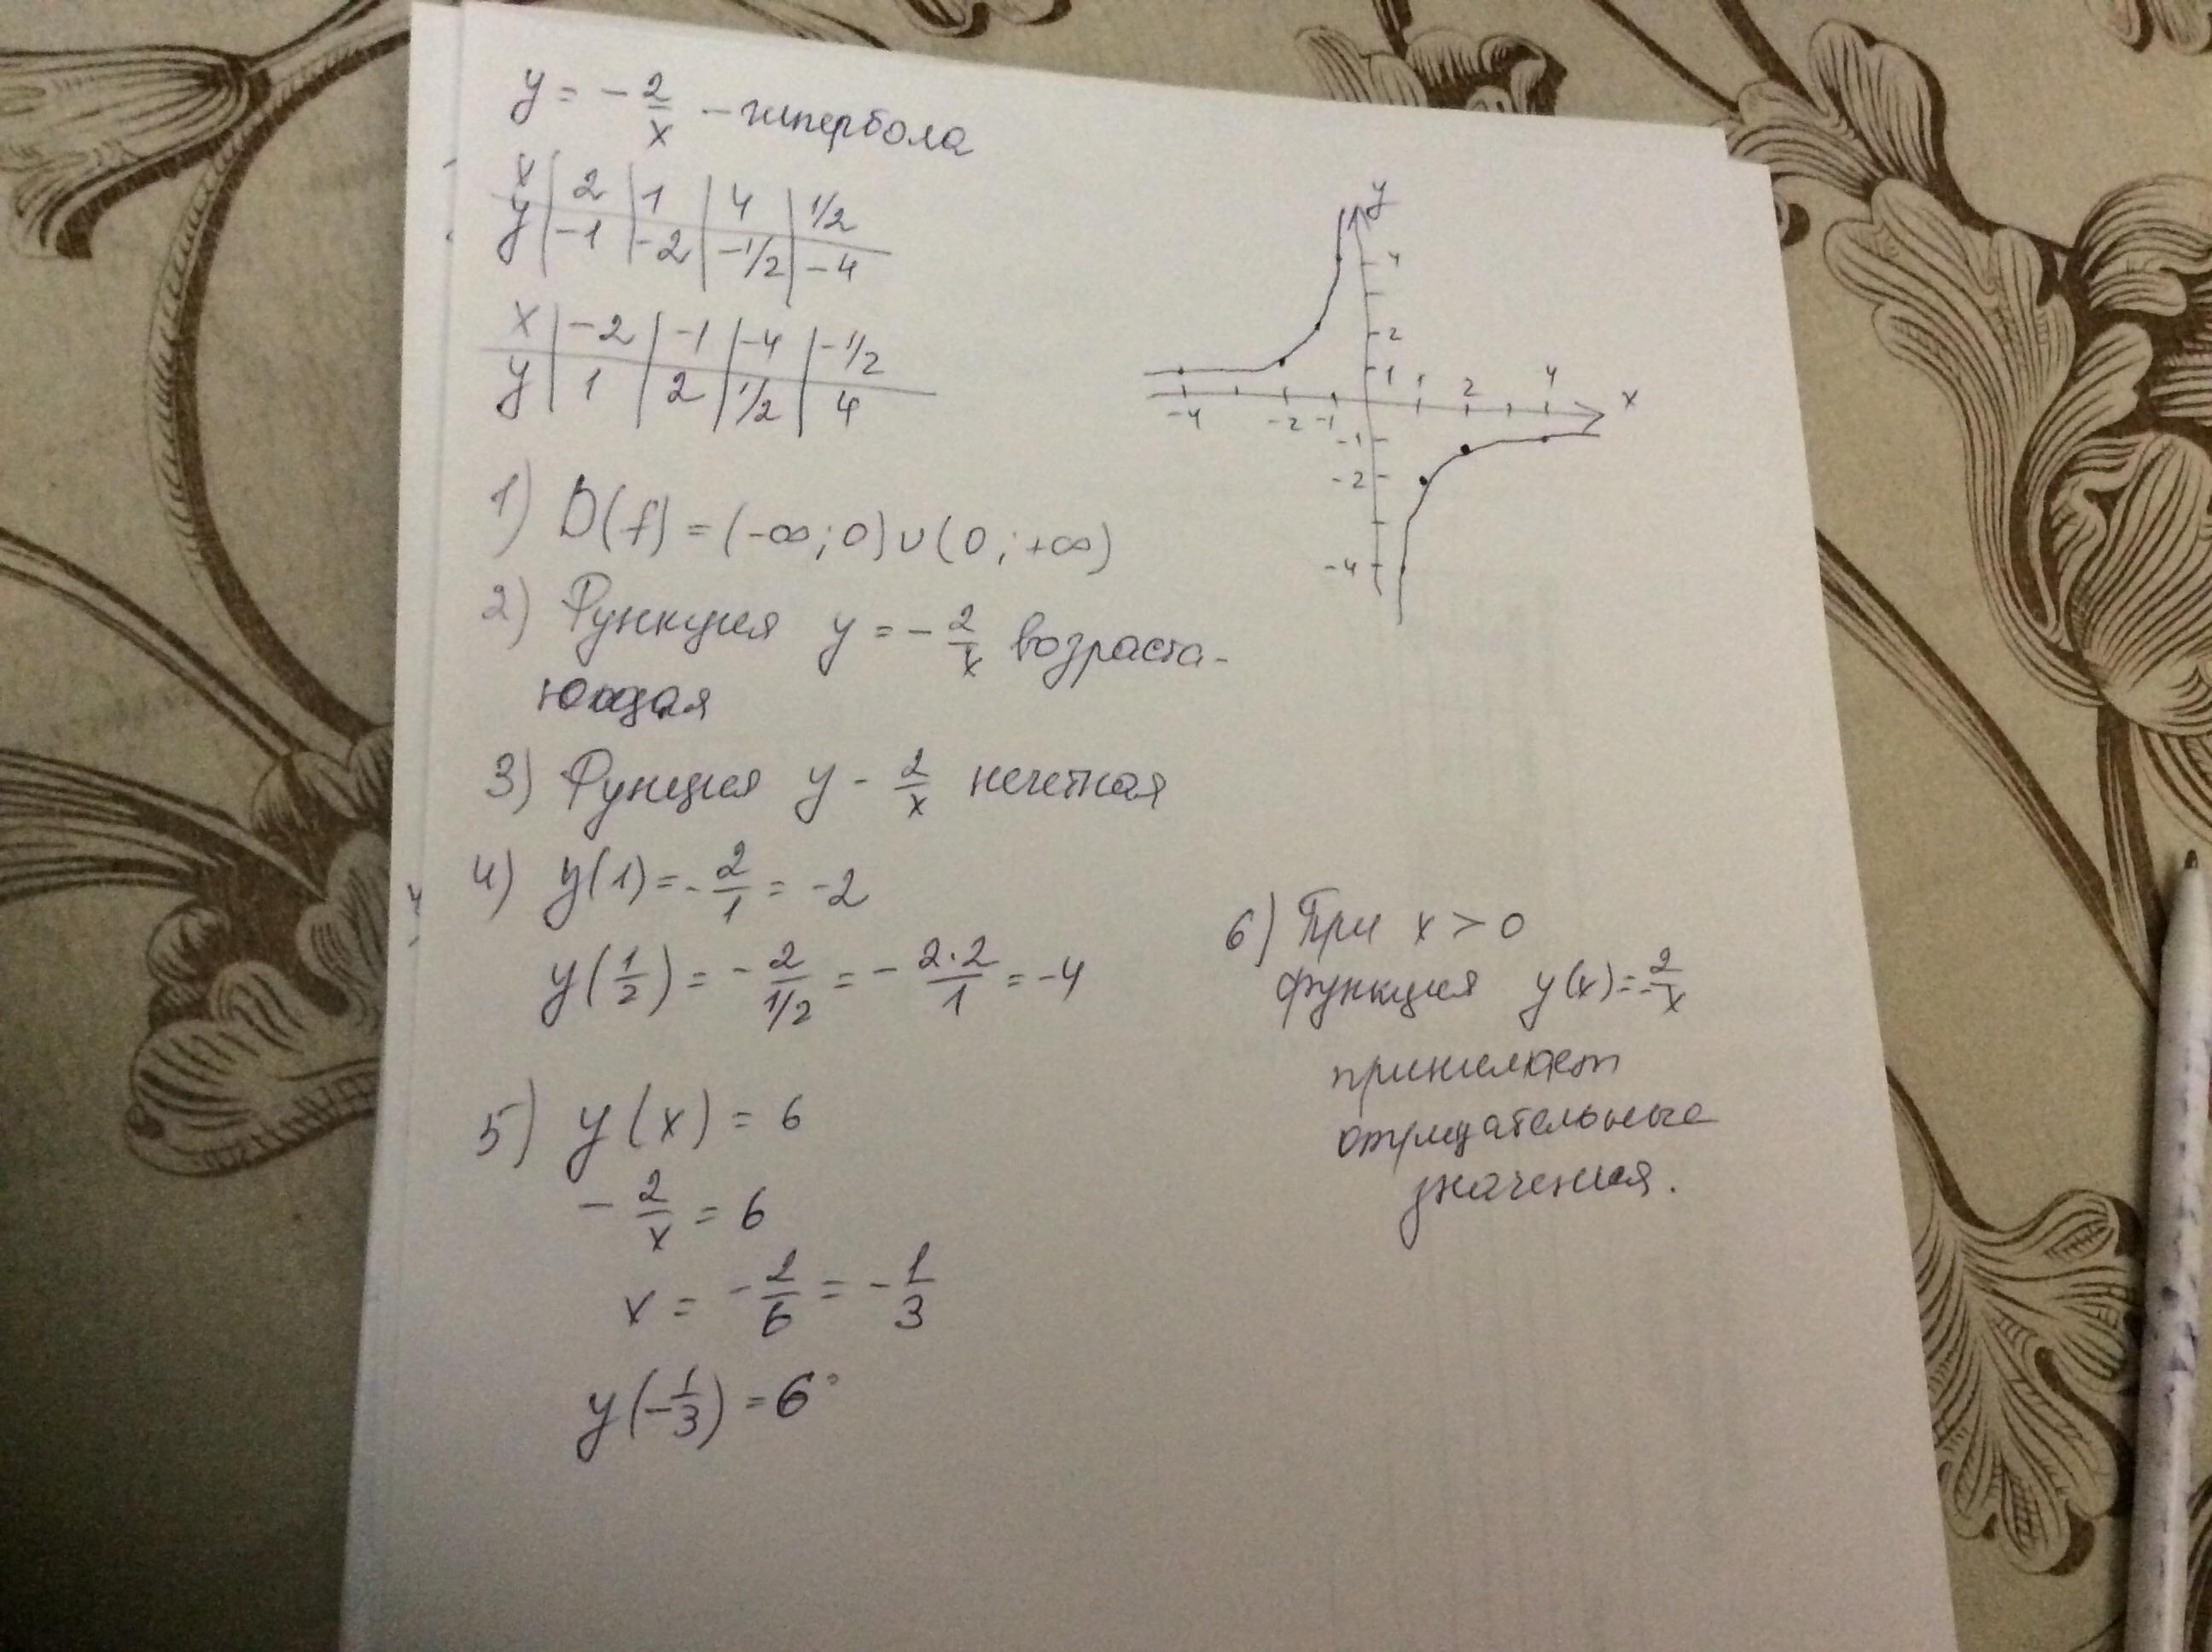 y = - 2/x - гипербола
x | 2 | 1 | 4 | 1/2
y | -1 | -2 | -1/2 | -4
x | -2 | -1 | -4 | -1/2
y | 1 | 2 | 1/2 | 4
y
4
2
1 1 2 4 x
-4 -2 -1
-1
-2
-4
1) D(f) = (-∞; 0) ∪ (0; +∞)
2) Функция y = - 2/x возраста-
ющая
3) Функция y - 2/x нечетная
4) y(1) = - 2/1 = -2
y(1/2) = - 2/1/2 = - 2·2/1 = -4
5) y(x) = 6
- 2/x = 6
x = - 2/6 = - 1/3
y(-1/3) = 6
6) При x > 0
функция y(x) = - 2/x
принимает
отрицательные
значения.